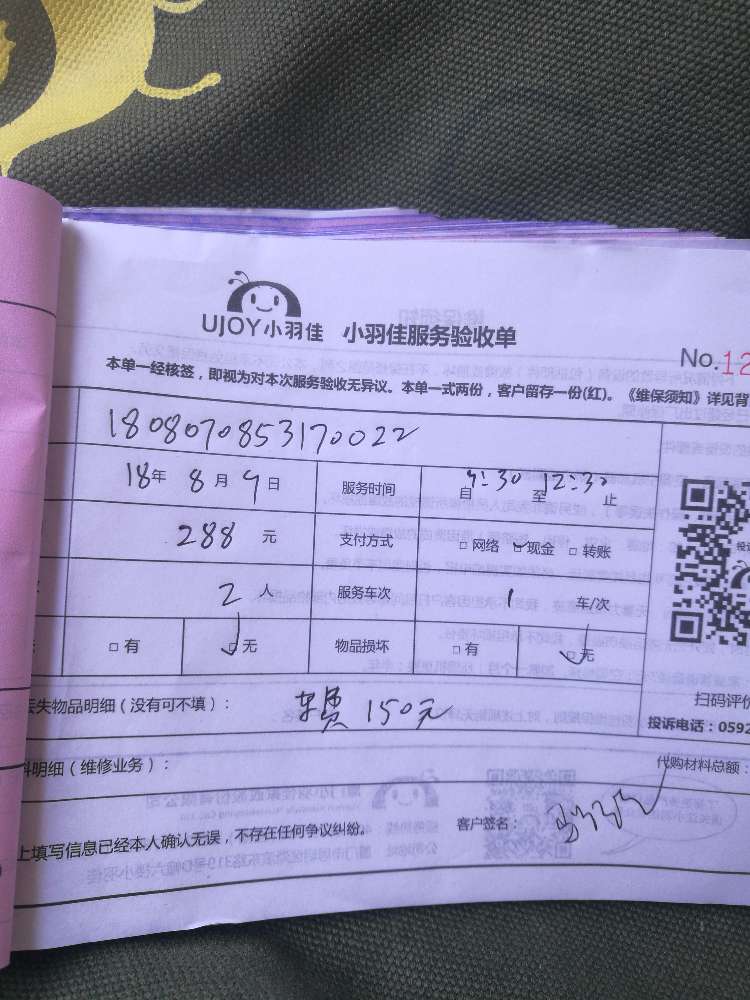 UJOY小羽佳 小羽佳服务验收单
No.12
本单一经核签，即视为对本次服务验收无异议。本单一式两份，客户留存一份(红)。《维保须知》详见背
1808070853170022
18年 8月9日 服务时间 自9:30至12:30止
288元 支付方式 □网络 ☑现金 □转账
2人 服务车次 1 车/次
□有 ☑无 物品损坏 □有 ☑无
扫码评价
丢失物品明细（没有可不填）： 车费 150元
投诉电话：0592
料明细（维修业务）： 代购材料总额：
上填写信息已经本人确认无误，不存在任何争议纠纷。 客户签名：